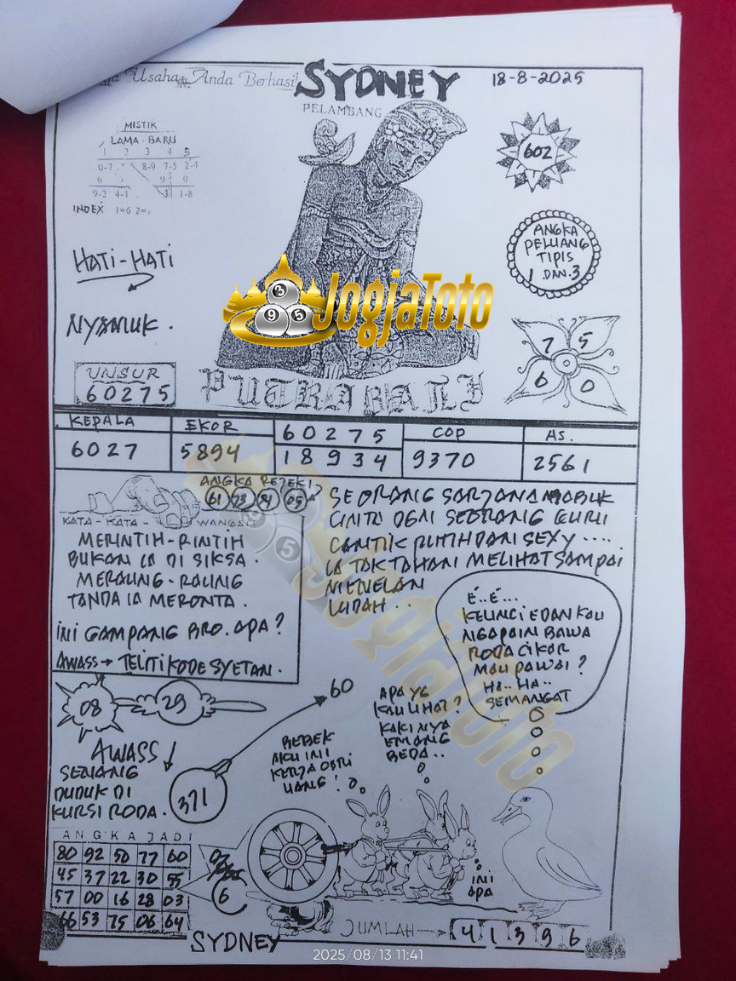 Usaha Anda Berhasil
SYDNEY
18-8-2025
PELAMBANG
MISTIK
LAMA - BARU
1 2 3 4 5
0-7 8-9 7-5 2-1
6 9 0
9-2 4-1 1-8
INDEX
602
ANGKA
PELUANG
TIPIS
1 DAN 3
HATI-HATI
NYAMUK.
JogjaToto
UNSUR
60275
7 5
6 0
PUTRA BALI
KEPALA EKOR 60275 COP AS.
6027 5894 18934 9370 2561
ANGKA REJEKI
61 23 54 05
KATA - KATA - WANGSIT
MERINTIH-RINTIH
BUKAN IA DI SIKSA.
MERAUNG-RAUNG
TANDA IA MERONTA.
INI GAMPANG BRO. APA?
AWASS → TELITI KODE SYETAN.
SEORANG SARJANA MABUK
CINTA DGN SEORANG GURU
CANTIK PUTIH DAN SEXY ....
IA TAK TAHAN MELIHAT SAMPAI
MENELAN
LUDAH..
E..E...
KELINCI EDAN KAU
NGAPAIN BAWA
RODA CIKAR
MAU PAWAI?
HA.. HA..
SEMANGAT
08
29
60
AWASS
SENANG
DUDUK DI
KURSI RODA.
371
BEBEK
AKU INI
KERJA DEMI
UANG!
APA YG
KAU LIHAT?
KAKINYA
EMANG
BEDA..
INI
APA
ANGKA JADI
80 92 50 77 60
45 37 22 30 55
57 00 16 28 03
66 53 75 06 64
6
JUMLAH → 41396
SYDNEY
2025/08/13 11:41